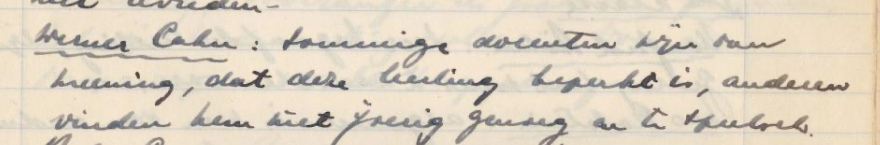 Werner Cahn : Sommige docenten zijn van
meening, dat deze leerling beperkt is, anderen
vinden hem niet ijverig genoeg en te speelsch.